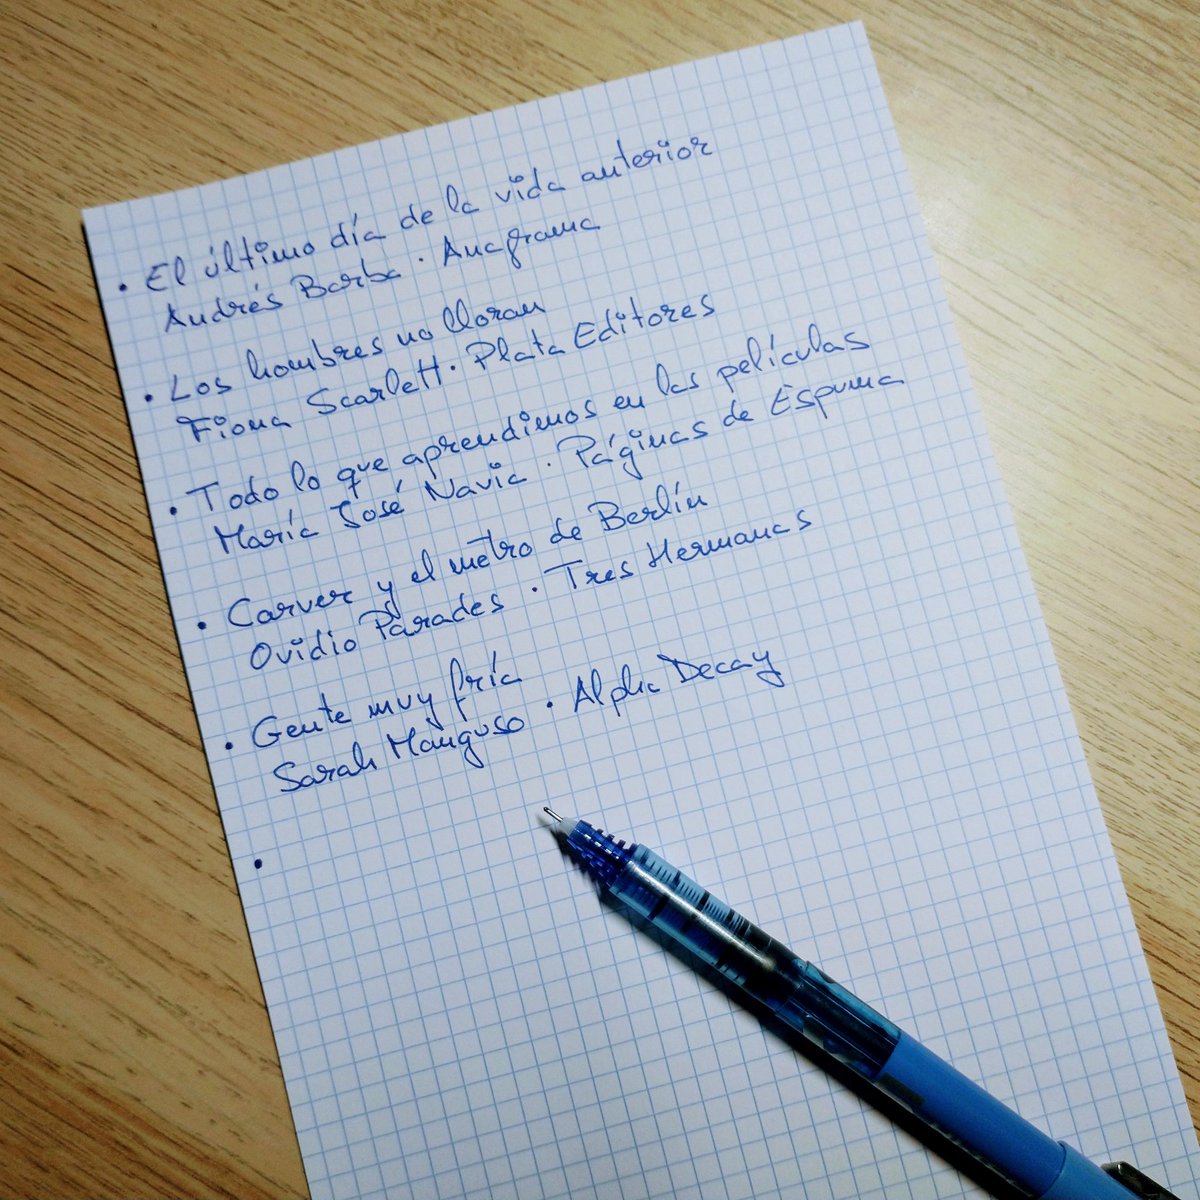 • El último día de la vida anterior
Andrés Barba · Anagrama
• Los hombres no lloran
Fiona Scarlett · Plata Editores
• Todo lo que aprendimos en las películas
María José Navia · Páginas de Espuma
• Carver y el metro de Berlín
Ovidio Parades · Tres Hermanas
• Gente muy fría
Sarah Manguso · Alpha Decay
•